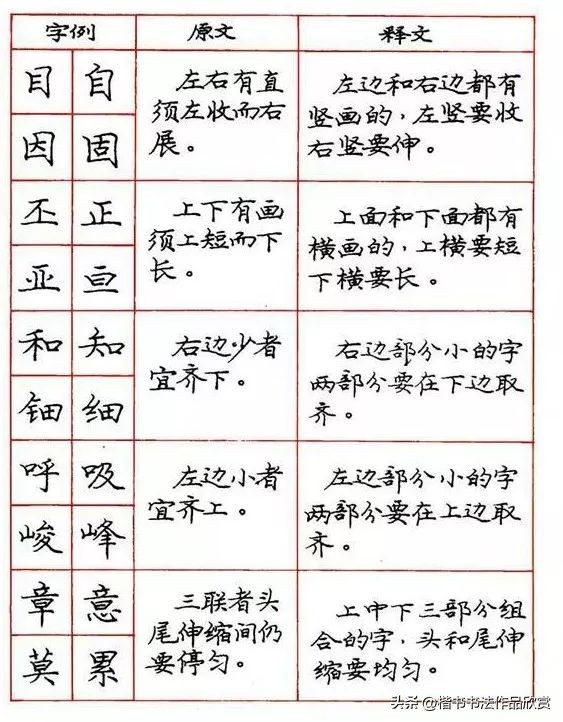 字例 原文 释文
目 自
因 固
左右有直
须左收而右
展。
左边和右边都有
竖画的，左竖要收
右竖要伸。
丕 正
亚 亘
上下有画
须上短而下
长。
上面和下面都有
横画的，上横要短
下横要长。
和 知
钿 细
右边少者
宜齐下。
右边部分小的字
两部分要在下边取
齐。
呼 吸
峻 峰
左边小者
宜齐上。
左边部分小的字
两部分要在上边取
齐。
章 意
莫 累
三联者头
尾伸缩间仍
要停匀。
上中下三部分组
合的字，头和尾伸
缩要均匀。
头条@楷书书法作品欣赏